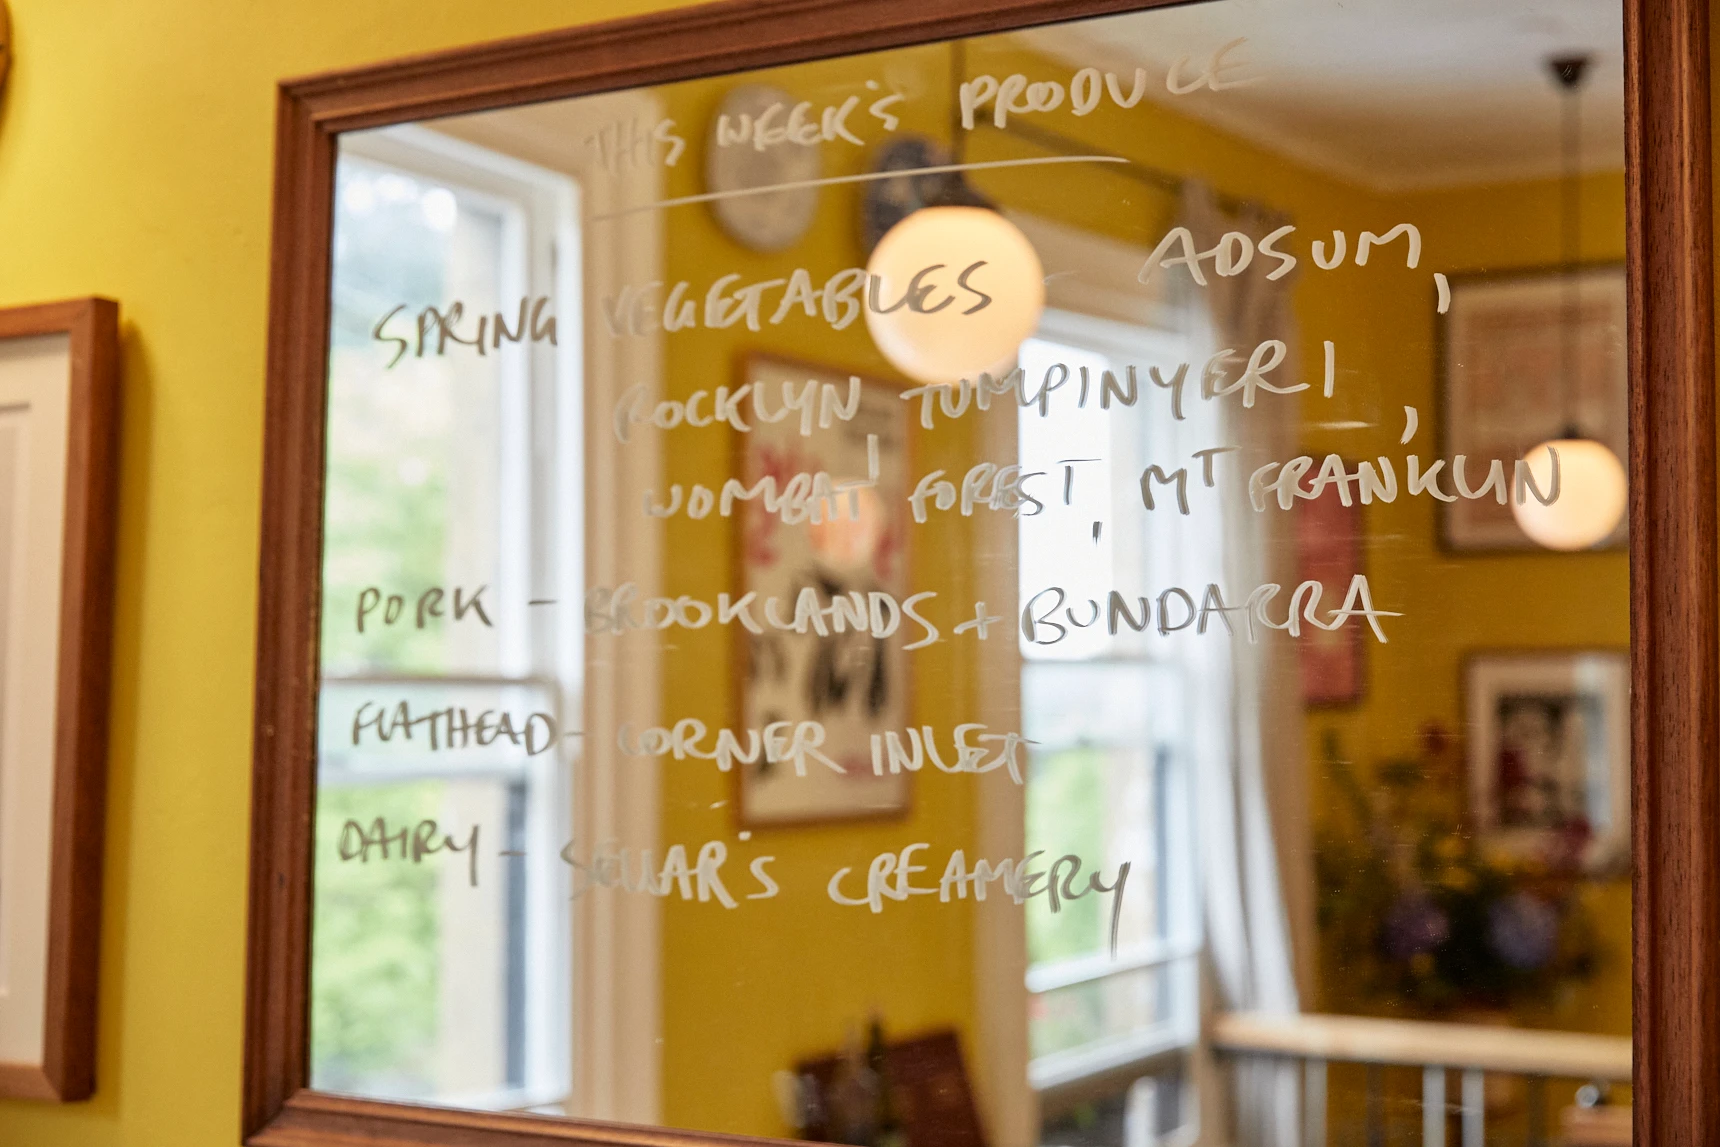 THIS WEEK'S PRODUCE
SPRING VEGETABLES - ADSUM,
ROCKLYN, TUMPINYERI,
WOMBAT FOREST, MT FRANKLIN
PORK - BROOKLANDS + BUNDARRA
FLATHEAD - CORNER INLET
DAIRY - SELLAR'S CREAMERY